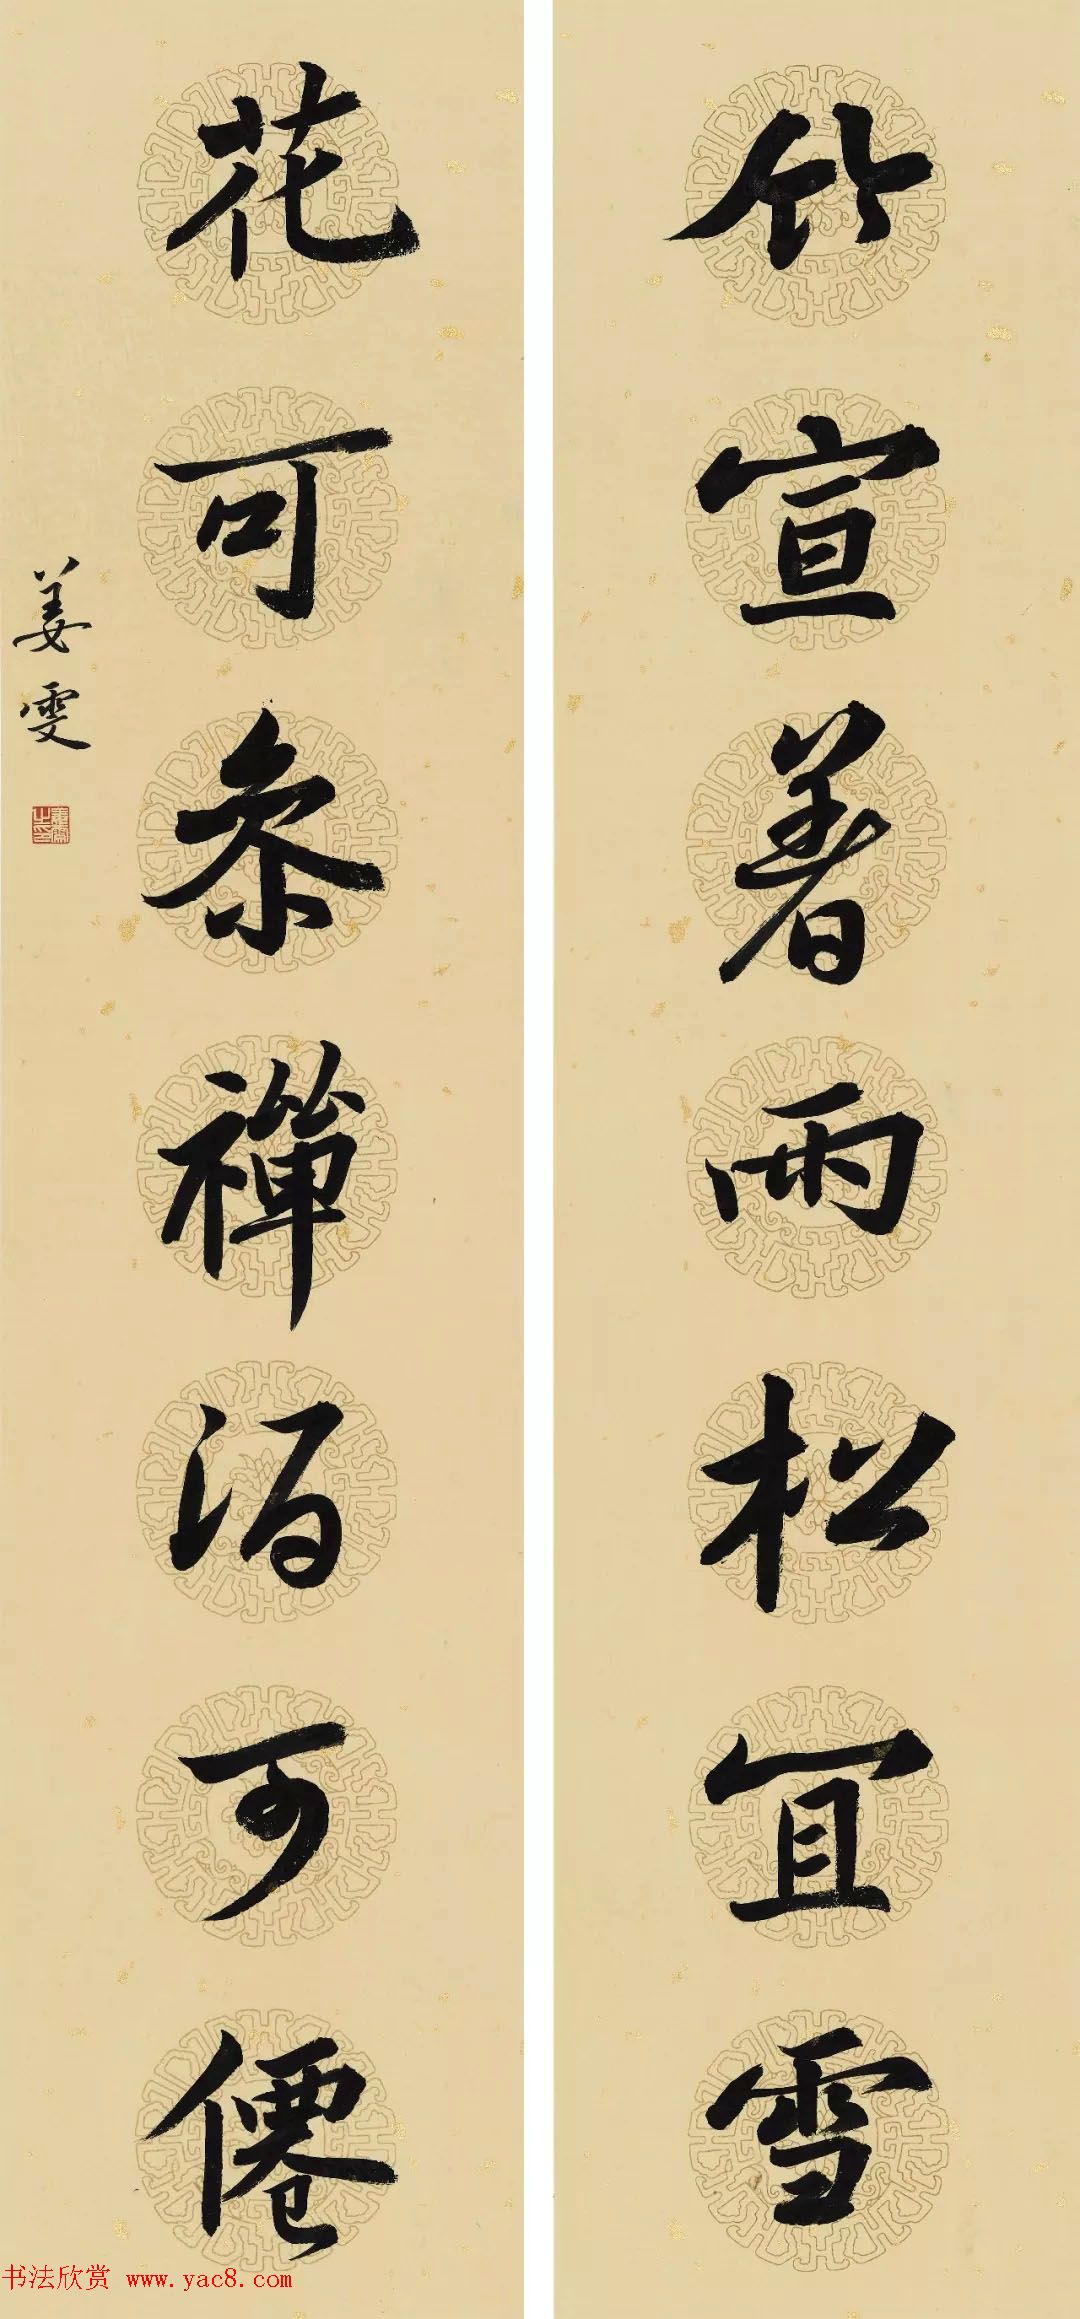 竹宣著雨松宜雪
花可参禪酒可僊
姜雯
书法欣赏 www.yac8.com